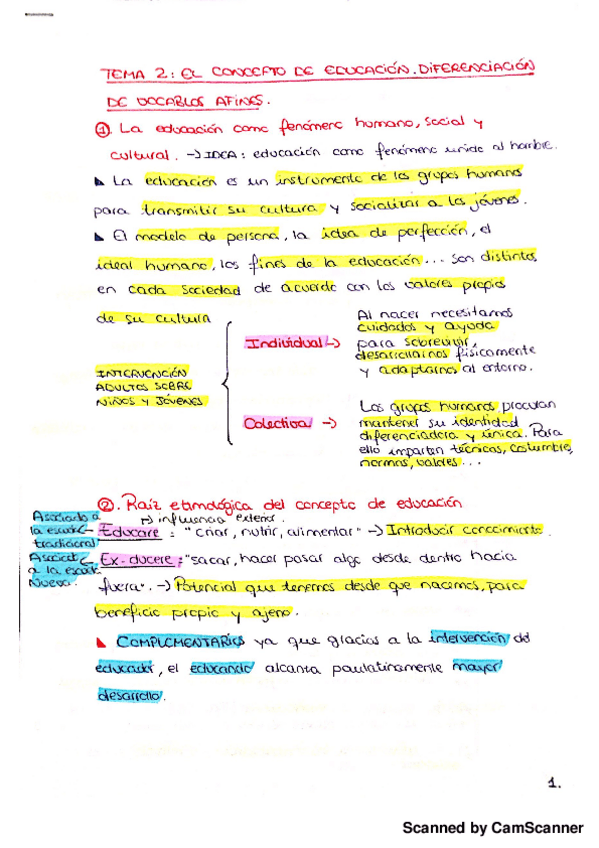 TEMA 2: EL CONCEPTO DE EDUCACIÓN. DIFERENCIACIÓN
DE VOCABLOS AFINES.
① La educación como fenómeno humano, social y
cultural. → IDEA: educación como fenómeno unido al hombre.
▶ La educación es un instrumento de los grupos humanos
para transmitir su cultura y socializar a los jóvenes.
▶ El modelo de persona, la idea de perfección, el
ideal humano, los fines de la educación... son distintos
en cada sociedad de acuerdo con los valores propios
de su cultura
INTERVENCIÓN
ADULTOS SOBRE
NIÑOS Y JÓVENES
Individual →
Al nacer necesitamos
cuidados y ayuda
para sobrevivir,
desarrollarnos físicamente
y adaptarnos al entorno.
Colectiva →
Los grupos humanos procuran
mantener su identidad
diferenciadora y única. Para
ello imparten técnicas, costumbres,
normas, valores...
②. Raíz etimológica del concepto de educación
Asociado a
la escuela
tradicional
↱ influencia exterior.
← Educare : "criar, nutrir, alimentar" → Introducir conocimiento.
Asociat
a la escuela
Nueva.
← Ex-ducere : "sacar, hacer pasar algo desde dentro hacia
fuera". → Potencial que tenemos desde que nacemos, para
beneficio propio y ajeno.
▶ COMPLEMENTARIOS ya que gracias a la intervención del
educador, el educando alcanza paulatinamente mayor
desarrollo.
1.
Scanned by CamScanner